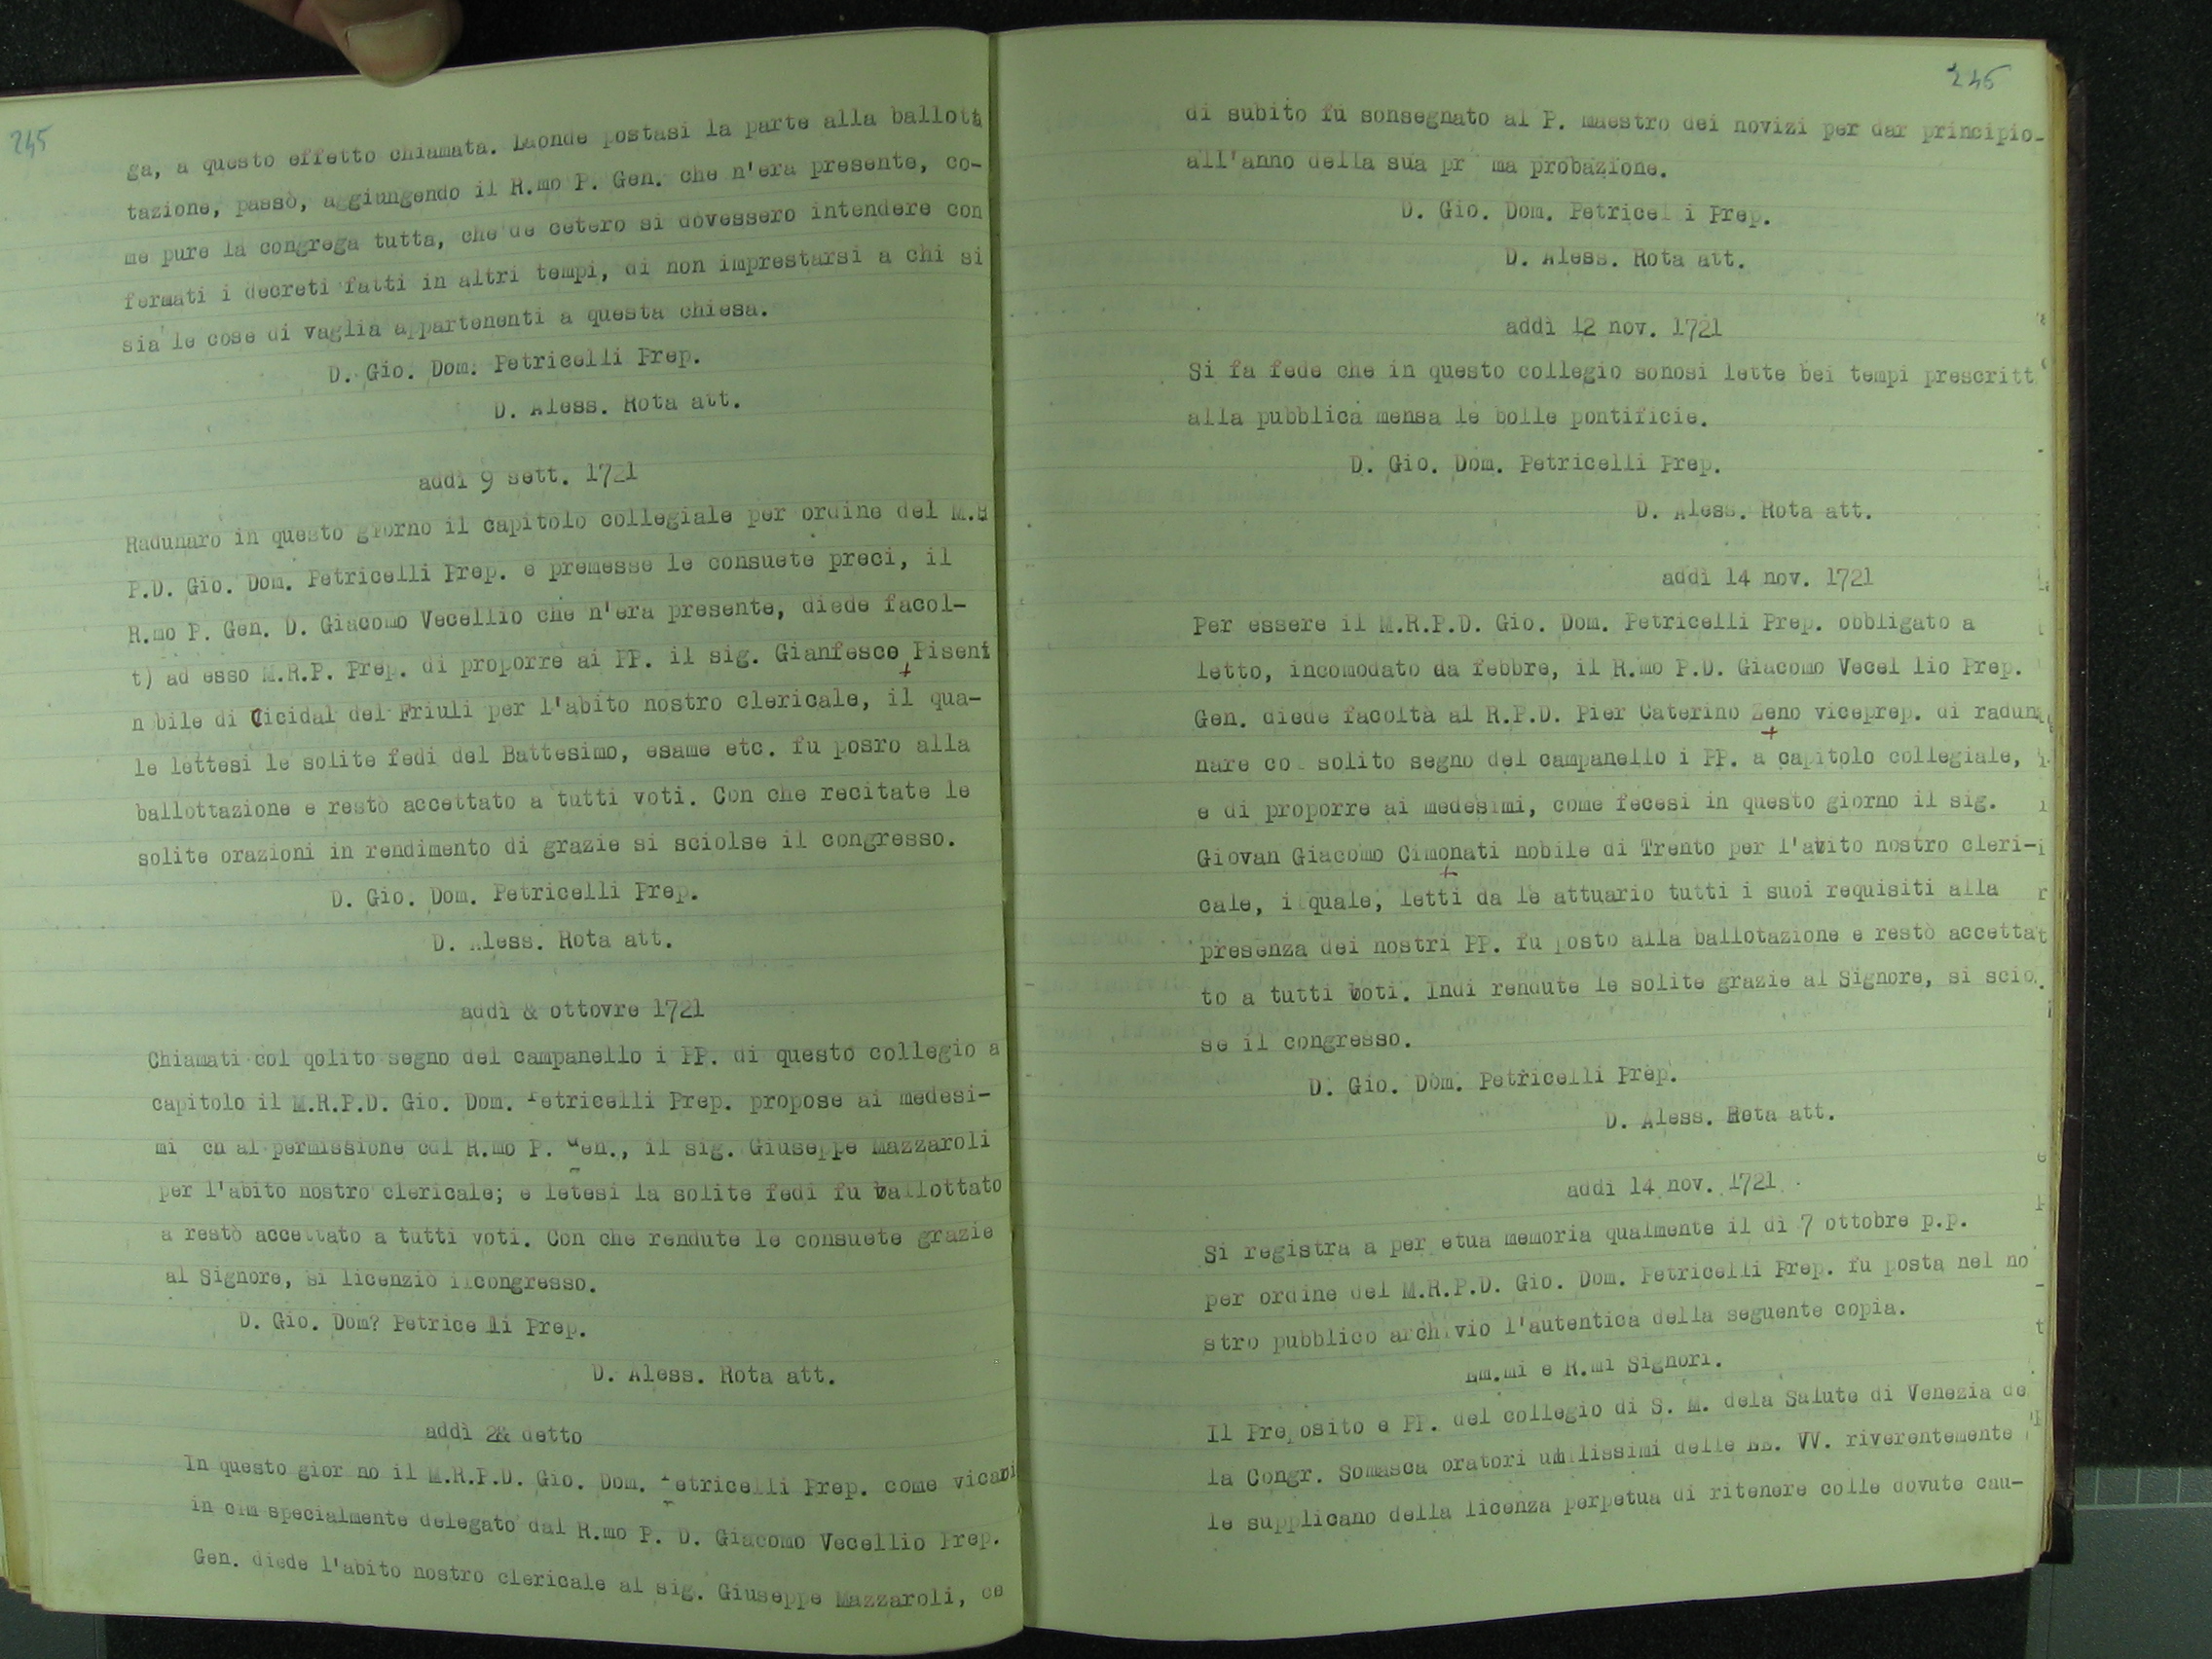 245
ga, a questo effetto chiamata. Laonde postasi la parte alla ballott
tazione, passò, aggiungendo il R.mo P. Gen. che n'era presente, co-
me pure la congrega tutta, che de cetero si dovessero intendere con
fermati i decreti fatti in altri tempi, di non imprestarsi a chi si
sia le cose di vaglia appartenenti a questa chiesa.
D. Gio. Dom. Petricelli Prep.
D. Aless. Rota att.
addì 9 sett. 1721
Radunaro in questo giorno il capitolo collegiale per ordine del M.R
P.D. Gio. Dom. Petricelli Prep. e premesse le consuete preci, il
R.mo P. Gen. D. Giacomo Vecellio che n'era presente, diede facol-
t) ad esso M.R.P. Prep. di proporre ai PP. il sig. Gianfesco Piseni
n bile di Cicidal del Friuli per l'abito nostro clericale, il qua-
le lettesi le solite fedi del Battesimo, esame etc. fu posro alla
ballottazione e restò accettato a tutti voti. Con che recitate le
solite orazioni in rendimento di grazie si sciolse il congresso.
D. Gio. Dom. Petricelli Prep.
D. Aless. Rota att.
addì & ottovre 1721
Chiamati col qolito segno del campanello i PP. di questo collegio a
capitolo il M.R.P.D. Gio. Dom. Petricelli Prep. propose ai medesi-
mi cn al permissione cdl R.mo P. Gen., il sig. Giuseppe Mazzaroli
per l'abito nostro clericale; e letesi la solite fedi fu ballottato
a restò accettato a tutti voti. Con che rendute le consuete grazie
al Signore, si licenziò ilcongresso.
D. Gio. Dom? Petricelli Prep.
D. Aless. Rota att.
addì 2& detto
In questo gior no il M.R.P.D. Gio. Dom. Petricelli Prep. come vicari
in cim specialmente delegato dal R.mo P. D. Giacomo Vecellio Prep.
Gen. diede l'abito nostro clericale al sig. Giuseppe Mazzaroli, ce
246
di subito fu sonsegnato al P. maestro dei novizi per dar principio
all'anno della sua pr ma probazione.
D. Gio. Dom. Petricelli Prep.
D. Aless. Rota att.
addì 12 nov. 1721
Si fa fede che in questo collegio sonosi lette bei tempi prescritt
alla pubblica mensa le bolle pontificie.
D. Gio. Dom. Petricelli Prep.
D. Aless. Rota att.
addì 14 nov. 1721
Per essere il M.R.P.D. Gio. Dom. Petricelli Prep. obbligato a
letto, incomodato da febbre, il R.mo P.D. Giacomo Vecel lio Prep.
Gen. diede facoltà al R.P.D. Pier Caterino Zeno viceprep. di radun
nare col solito segno del campanello i PP. a capitolo collegiale,
e di proporre ai medesimi, come fecesi in questo giorno il sig.
Giovan Giacomo Cimonati nobile di Trento per l'abito nostro cleri-
cale, il quale, letti da le attuario tutti i suoi requisiti alla
presenza dei nostri PP. fu posto alla ballotazione e restò accettat
to a tutti voti. Indi rendute le solite grazie al Signore, si scio
se il congresso.
D. Gio. Dom. Petricelli Prep.
D. Aless. Rota att.
addì 14 nov. 1721
Si registra a perpetua memoria qualmente il dì 7 ottobre p.p.
per ordine del M.R.P.D. Gio. Dom. Petricelli Prep. fu posta nel no
stro pubblico archivio l'autentica della seguente copia.
Em.mi e R.mi Signori.
Il Preposito e PP. del collegio di S. M. dela Salute di Venezia de
la Congr. Somasca oratori umilissimi delle EE. VV. riverentemente
le supplicano della licenza perpetua di ritenere colle dovute cau-